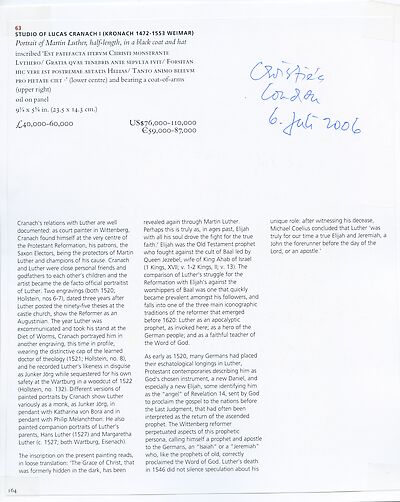 63
STUDIO OF LUCAS CRANACH I (KRONACH 1472-1553 WEIMAR)
Portrait of Martin Luther, half-length, in a black coat and hat
inscribed 'Est patefacta iterum Christi monstrante
Luthero/ Gratia quae tenebris ante sepulta fuit/ Forsitan
hic vere est postremae aetatis Helias/ Tanto animo bellum
pro pietate ciet ·' (lower centre) and bearing a coat-of-arms
(upper right)
oil on panel
9¼ x 5⅝ in. (23.5 x 14.3 cm.)
£40,000-60,000
US$76,000-110,000
€59,000-87,000
Christie's
London
6. Juli 2006
Cranach's relations with Luther are well
documented: as court painter in Wittenberg,
Cranach found himself at the very centre of
the Protestant Reformation, his patrons, the
Saxon Electors, being the protectors of Martin
Luther and champions of his cause. Cranach
and Luther were close personal friends and
godfathers to each other's children and the
artist became the de facto official portraitist
of Luther. Two engravings (both 1520;
Hollstein, nos 6-7), dated three years after
Luther posted the ninety-five theses at the
castle church, show the Reformer as an
Augustinian. The year Luther was
excommunicated and took his stand at the
Diet of Worms, Cranach portrayed him in
another engraving, this time in profile,
wearing the distinctive cap of the learned
doctor of theology (1521; Hollstein, no. 8),
and he recorded Luther's likeness in disguise
as Junker Jörg while sequestered for his own
safety at the Wartburg in a woodcut of 1522
(Hollstein, no. 132). Different versions of
painted portraits by Cranach show Luther
variously as a monk, as Junker Jörg, in
pendant with Katharina von Bora and in
pendant with Philip Melanchthon. He also
painted companion portraits of Luther's
parents, Hans Luther (1527) and Margaretha
Luther (c. 1527; both Wartburg, Eisenach).
The inscription on the present painting reads,
in loose translation: 'The Grace of Christ, that
was formerly hidden in the dark, has been
revealed again through Martin Luther.
Perhaps this is truly as, in ages past, Elijah
with all his soul drove the fight for the true
faith.' Elijah was the Old Testament prophet
who fought against the cult of Baal led by
Queen Jezebel, wife of King Ahab of Israel
(1 Kings, XVII; v. 1-2 Kings, II; v. 13). The
comparison of Luther's struggle for the
Reformation with Elijah's against the
worshippers of Baal was one that quickly
became prevalent amongst his followers, and
falls into one of the three main iconographic
traditions of the reformer that emerged
before 1620: Luther as an apocalyptic
prophet, as invoked here; as a hero of the
German people; and as a faithful teacher of
the Word of God.
As early as 1520, many Germans had placed
their eschatological longings in Luther,
Protestant contemporaries describing him as
God's chosen instrument, a new Daniel, and
especially a new Elijah, some identifying him
as the "angel" of Revelation 14, sent by God
to proclaim the gospel to the nations before
the Last Judgment, that had often been
interpreted as the return of the ascended
prophet. The Wittenberg reformer
perpetuated aspects of this prophetic
persona, calling himself a prophet and apostle
to the Germans, an "Isaiah" or a "Jeremiah"
who, like the prophets of old, correctly
proclaimed the Word of God. Luther's death
in 1546 did not silence speculation about his
unique role: after witnessing his decease,
Michael Coelius concluded that Luther 'was
truly for our time a true Elijah and Jeremiah, a
John the forerunner before the day of the
Lord, or an apostle.'
164